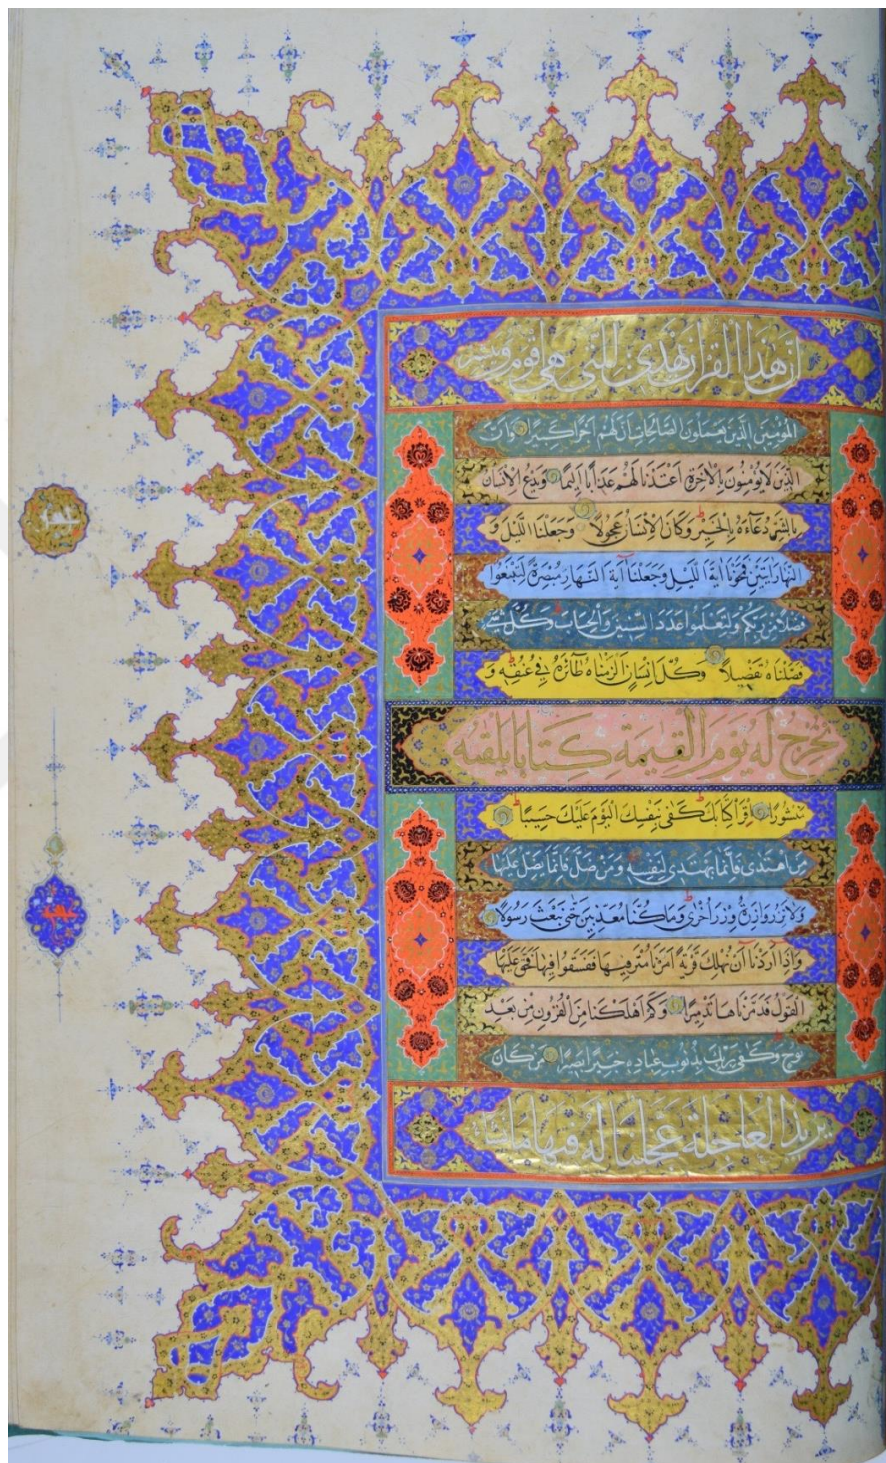 إن هذا القرآن يهدي للتي هي أقوم ويبشر
المؤمنين الذين يعملون الصالحات أن لهم أجرا كبيرا وأن
الذين لا يؤمنون بالآخرة أعتدنا لهم عذابا أليما ويدع الإنسان
بالشر دعاءه بالخير وكان الإنسان عجولا وجعلنا الليل و
النهار آيتين فمحونا آية الليل وجعلنا آية النهار مبصرة لتبتغوا
فضلا من ربكم ولتعلموا عدد السنين والحساب وكل شيء
فصلناه تفصيلا وكل إنسان ألزمناه طائره في عنقه و
نخرج له يوم القيمة كتابا يلقيه
منشورا اقرأ كتابك كفى بنفسك اليوم عليك حسيبا
من اهتدى فإنما يهتدي لنفسه ومن ضل فإنما يضل عليها
ولا تزر وازرة وزر أخرى وما كنا معذبين حتى نبعث رسولا
وإذا أردنا أن نهلك قرية أمرنا مترفيها ففسقوا فيها فحق عليها
القول فدمرناها تدميرا وكم أهلكنا من القرون من بعد
نوح وكفى بربك بذنوب عباده خبيرا بصيرا من كان
يريد العاجلة عجلنا له فيها ما نشاء